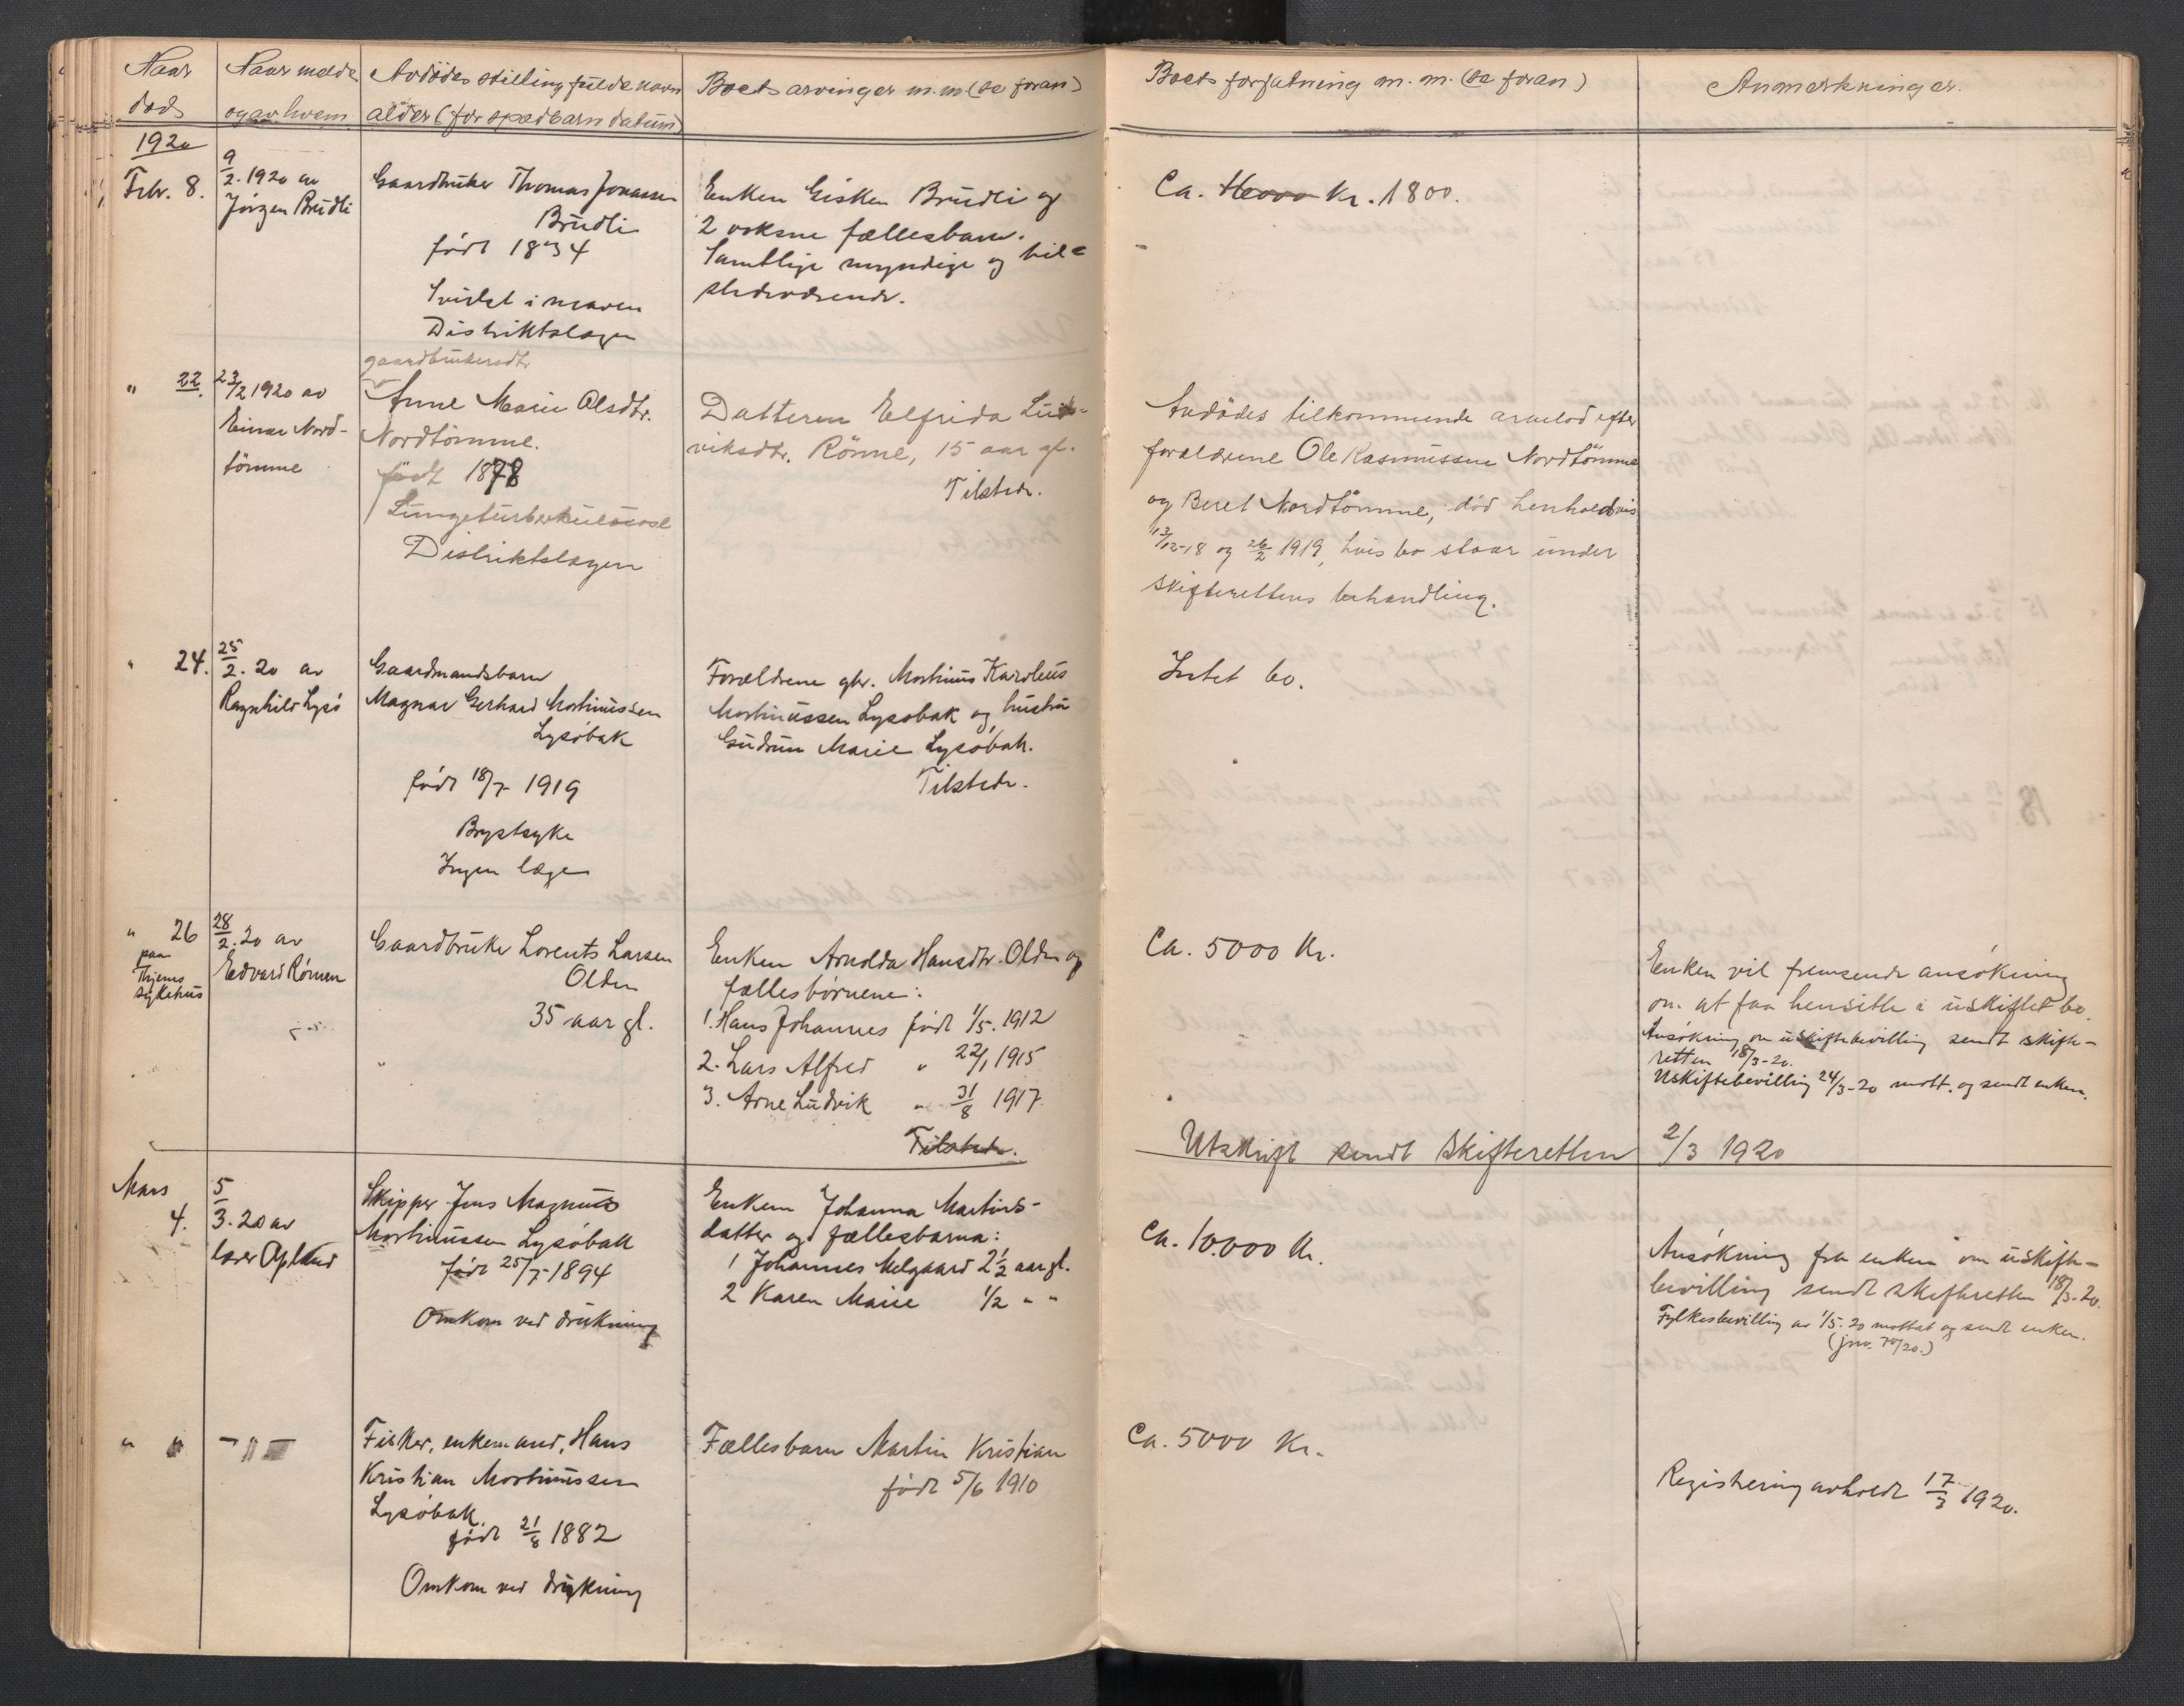 Naar død
Naar melde og av hvem
Avdødes stilling fulde navn alder (for spædbarn datum)
Boets arvinger m.m (se foran)
Boets forfatning m. m. (se foran)
Anmerkninger.
1920
Febr. 8.
9/2. 1920 av
Jörgen Brudli
Gaardbruker Thomas Jonassen
Brudli
født 1834
Svulst i maven
Distriktslægen
Enken Gisken Brudli og
2 voksne fællesbarn.
Samtlige myndige og til=
stedeværende.
Ca. Kr. 1800.
" 22.
23/2 1920 av
Einar Nord-
tömme
gaardbrukersdtr
Anne Marie Olsdtr.
Nordtömme.
født 1878
Lungetuberkulose
Distriktslægen
Datteren Elfrida Lud-
viksdtr. Rönne, 15 aar gl.
Tilstede.
Avdødes tilkommende arvelod efter
forældrene Ole Rasmussen Nordtömme
og Beret Nordtömme, död henholdsvis
13/12-18 og 26/2 1919, hvis bo staar under
skifterettens behandling.
" 24.
25/2. 20 av
Ragnhild Lysö
Gaardmandsbarn
Magnar Gerhard Mortinussen
Lysöbak
født 18/7 1919
Brystsyke
Ingen læge
Forældrene gbr. Mortinus Karolius
Mortinussen Lysøbak og hustru
Gudrun Marie Lysøbak.
Tilstede.
Intet bo.
" 26
paa
Thjems
sykehus
28/2. 20 av
Edvard Rönne
Gaardbruker Lorents Larsen
Olden
35 aar gl.
Enken Arnolda Hansdtr. Olden og
fællesbørnene:
1. Hans Johannes født 1/5. 1912
2. Lars Alfred " 22/1 1915
3. Arne Ludvik " 31/8 1917
Tilstede.
Ca. 5000 Kr.
Enken vil fremsende ansökning
om at faa hensitte i uskiftet bo.
Ansökning om uskiftebevilling sendt skifte-
retten 18/3-20.
Uskiftebevilling 24/3-20 mott. og sendt enken.
Utskrift sendt Skifteretten 2/3 1920
Mars
4.
5/3. 20 av
lærer Opland
Skipper Jens Magnus
Mortinussen Lysöbak
født 25/7 1894
Omkom ved drukning
Enken Johanna Martins-
datter og fællesbarna:
1 Johannes Melgaard 2 1/2 aar gl.
2 Karen Marie 1/2 " "
Ca. 10.000 Kr.
Ansökning fra enken om uskifte-
bevilling sendt skifteretten 18/3-20.
Fylkesbevilling av 1/5. 20 mottat og sendt enken.
(jnr. 70/20.)
" "
- " -
Fisker, enkemand, Hans
Kristian Mortinussen
Lysöbak.
født 21/8 1882
Omkom ved drukning
Fællesbarn Martin Kristian
født 5/6 1910
Ca. 5000 Kr.
Registrering avholdt 17/3 1920.